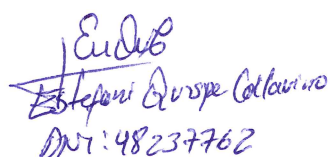 Estefani Quispe Collavino
DNI: 48237762